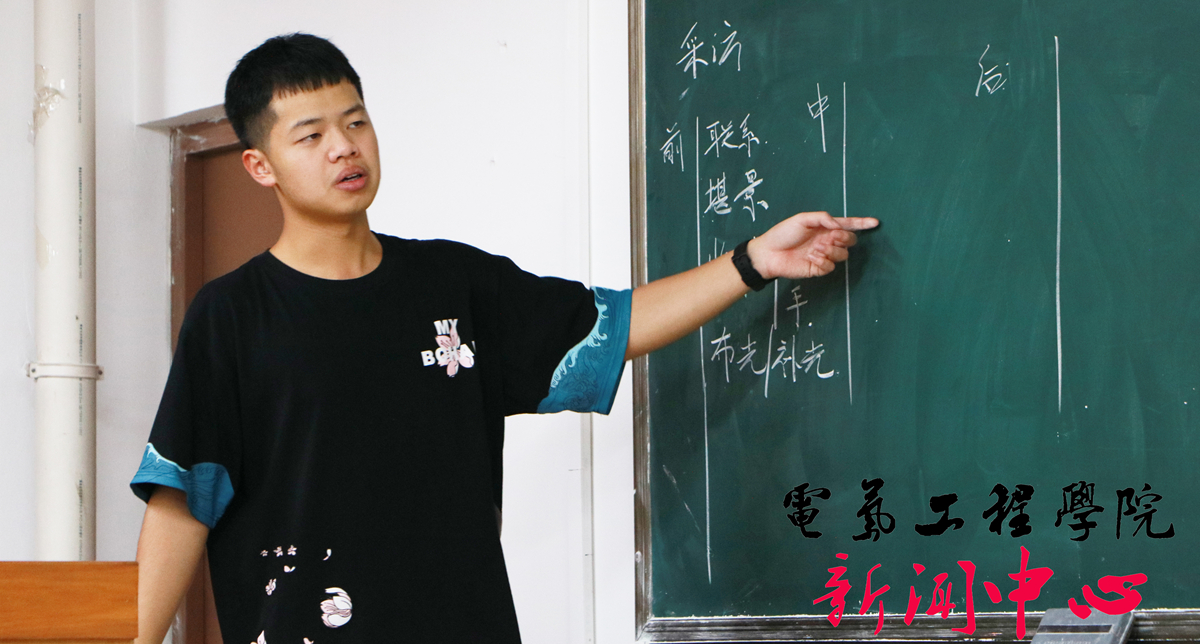 采访
后
中
前
联系
堪景
布光
补光
MY
電氣工程學院
新闻中心